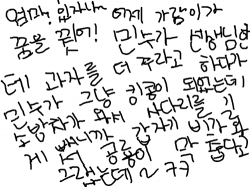 엄마, 있잖아~ 어제 가람이가
꿈을 꿨어! 민수가 선생님한
테 과자를 더 주라고 하다가
민수가 그냥 킹콩이 되었는데!
소방차가 와서 사다리를 기
게 뻐니까 갑자기 비가 와
그랬는데~ 공룡이 막 춥다고
ㅋㅋ